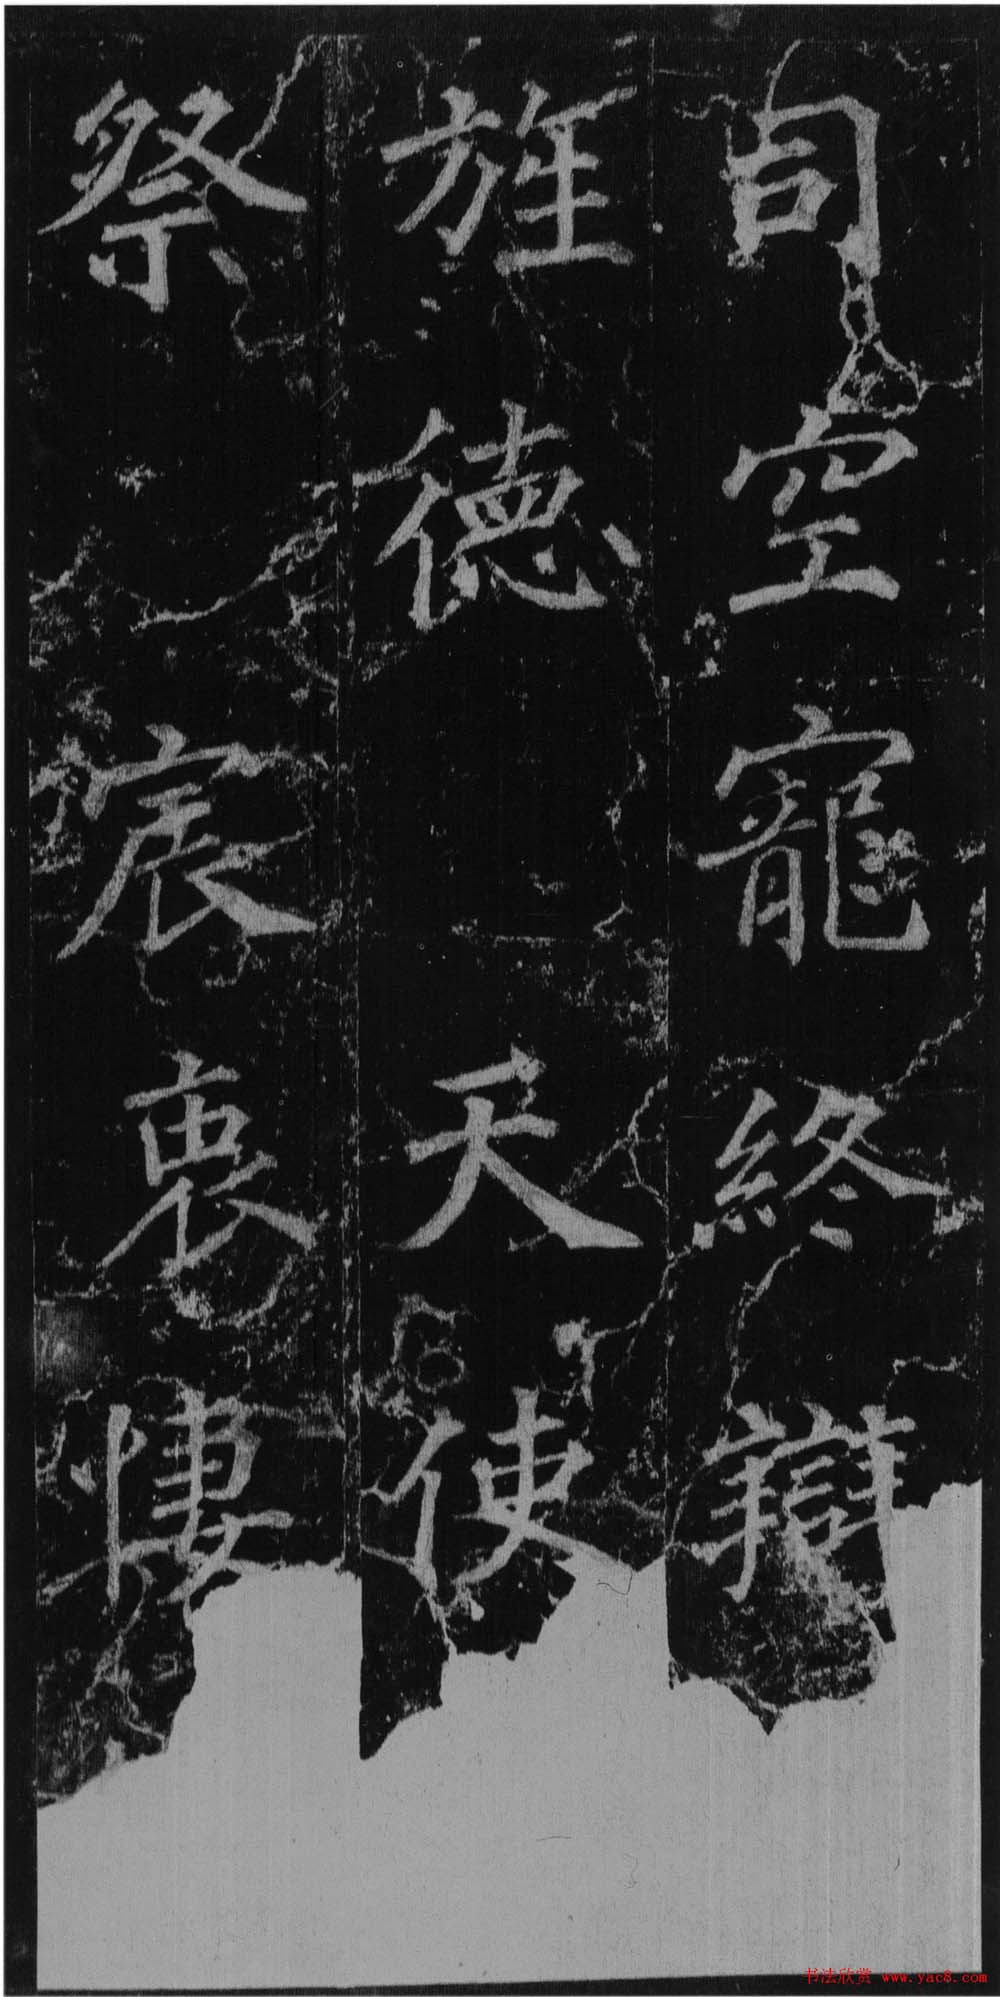 司空寵終辯
旌德天使
祭宸衷悽
书法欣赏 www.yac8.com